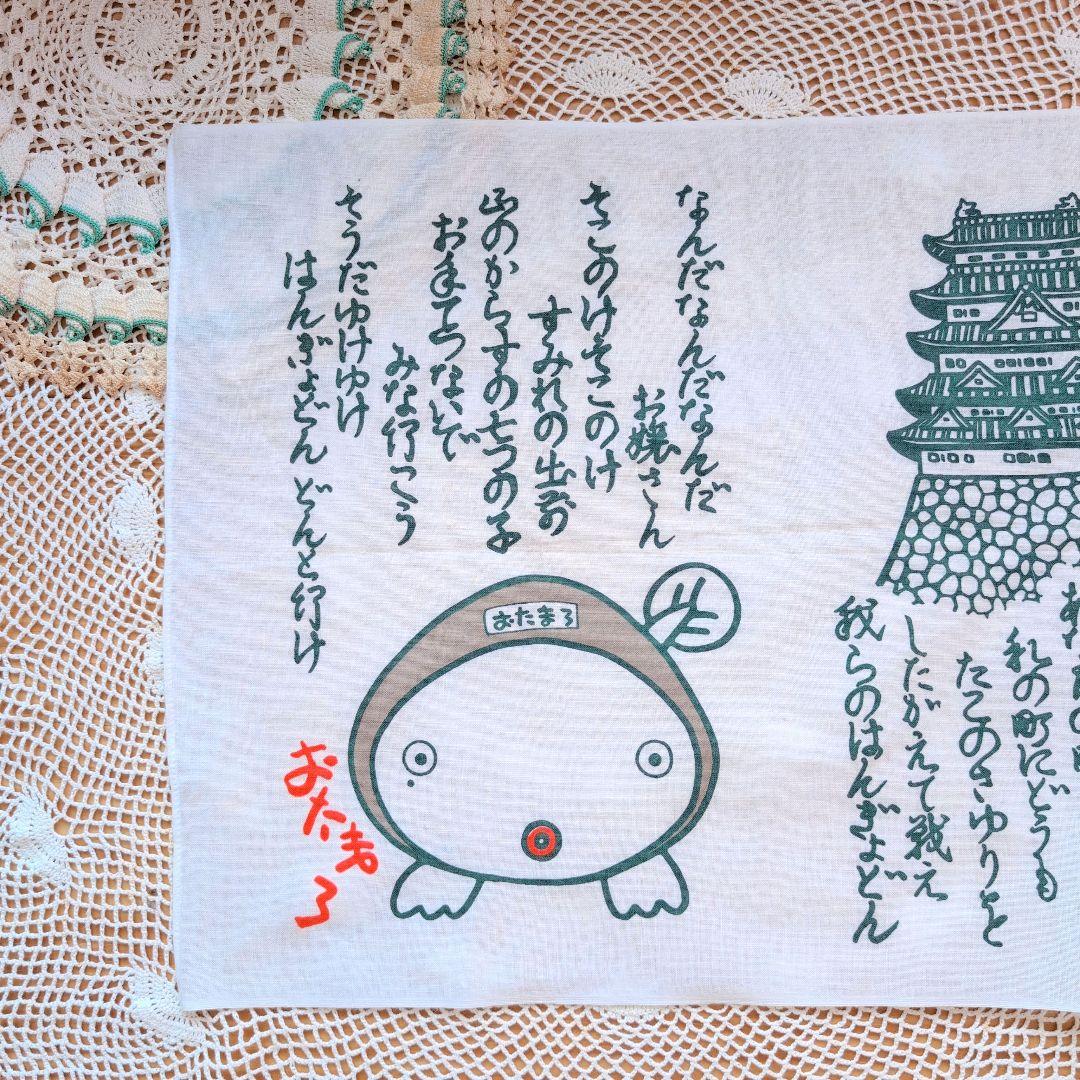 私の町にどうも
たこのさゆりを
したがえて戦え
我らのはんぎょどん
なんだなんだなんだ
お嬢さん
そこのけそこのけ
すみれの出前
山のからすの七つの子
お手てつないで
みな行こう
そうだゆけゆけ
はんぎょどん どんと行け
おたまろ
おたまろ